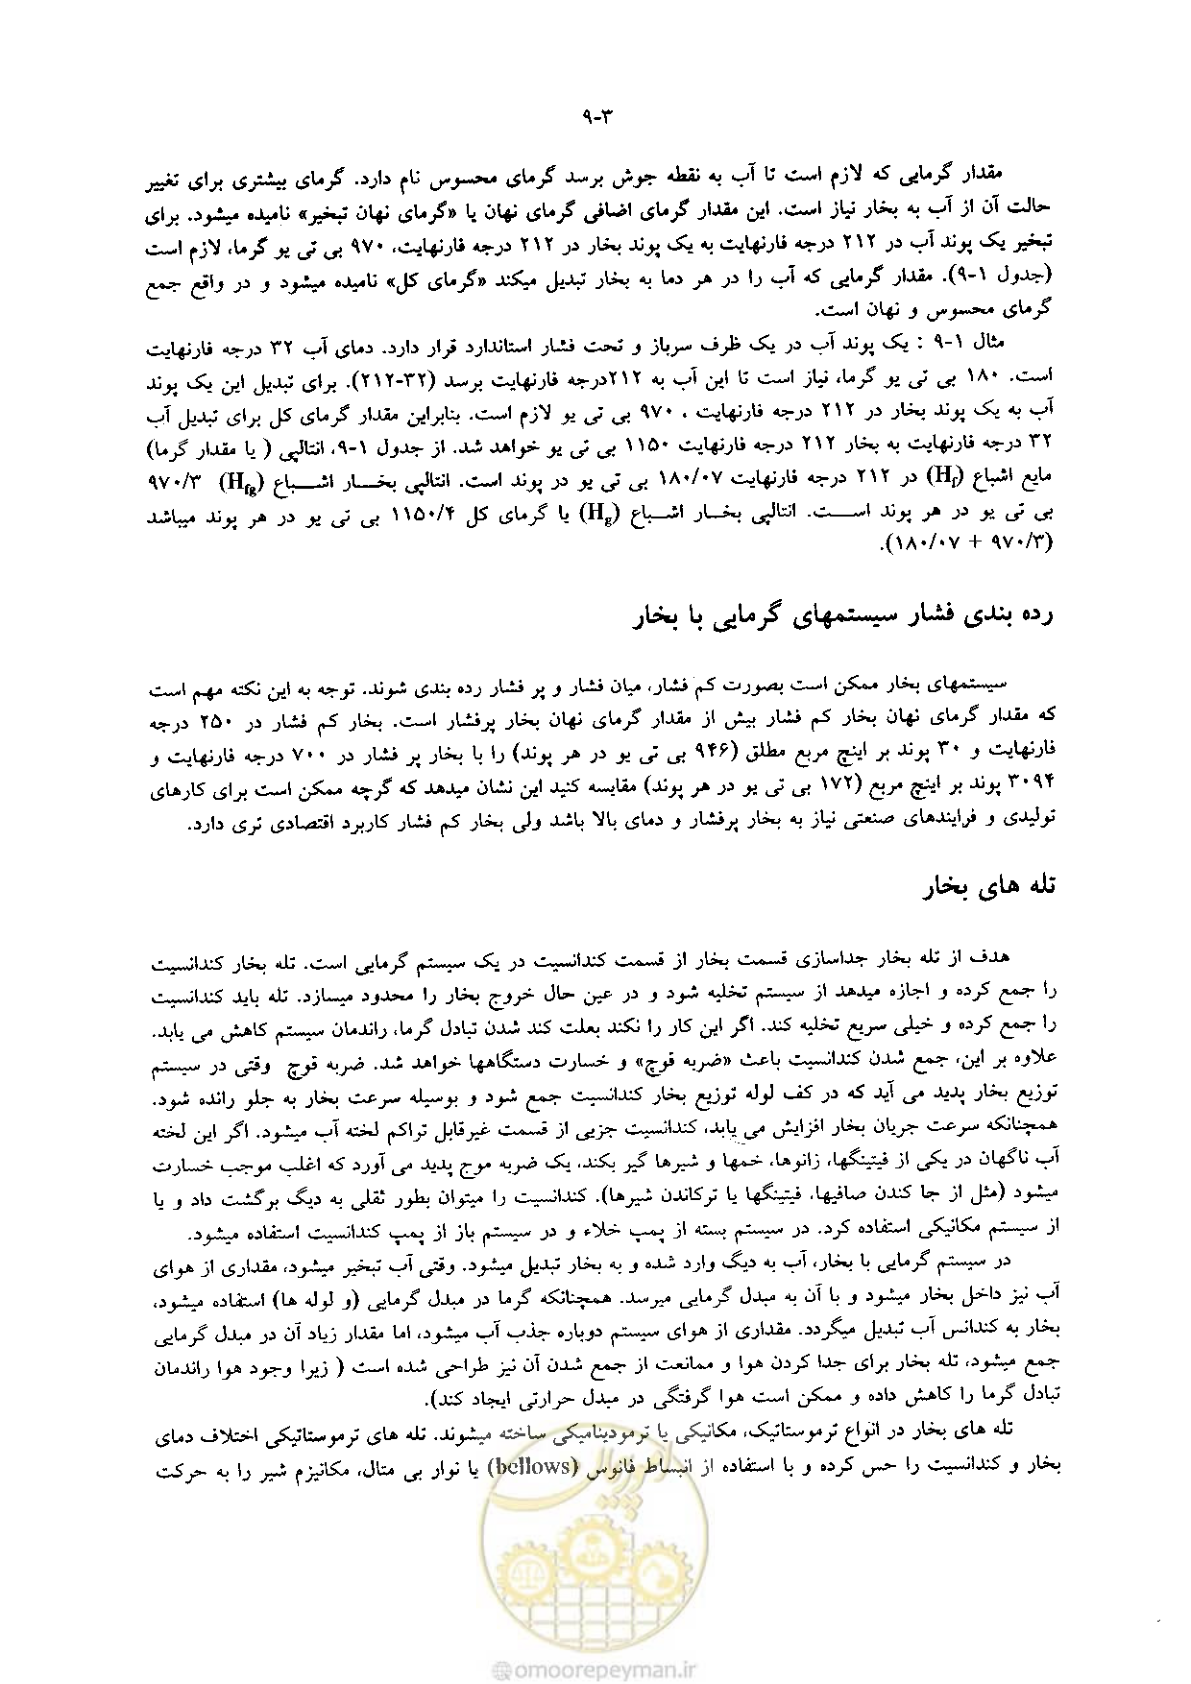 ۹-۳
مقدار گرمایی که لازم است تا آب به نقطه جوش برسد گرمای محسوس نام دارد. گرمای بیشتری برای تغییر
حالت آن از آب به بخار نیاز است. این مقدار گرمای اضافی گرمای نهان یا «گرمای نهان تبخیر» نامیده میشود. برای
تبخیر یک پوند آب در ۲۱۲ درجه فارنهایت به یک پوند بخار در ۲۱۲ درجه فارنهایت، ۹۷۰ بی تی یو گرما، لازم است
(جدول ۱-۹). مقدار گرمایی که آب را در هر دما به بخار تبدیل میکند «گرمای کل» نامیده میشود و در واقع جمع
گرمای محسوس و نهان است.
مثال ۱-۹ : یک پوند آب در یک ظرف سرباز و تحت فشار استاندارد قرار دارد. دمای آب ۳۲ درجه فارنهایت
است. ۱۸۰ بی تی یو گرما، نیاز است تا این آب به ۲۱۲درجه فارنهایت برسد (۳۲-۲۱۲). برای تبدیل این یک پوند
آب به یک پوند بخار در ۲۱۲ درجه فارنهایت ، ۹۷۰ بی تی یو لازم است. بنابراین مقدار گرمای کل برای تبدیل آب
۳۲ درجه فارنهایت به بخار ۲۱۲ درجه فارنهایت ۱۱۵۰ بی تی یو خواهد شد. از جدول ۱-۹، انتالپی ( یا مقدار گرما)
مایع اشباع (Hf) در ۲۱۲ درجه فارنهایت ۱۸۰/۰۷ بی تی یو در پوند است. انتالپی بخـــار اشـــباع (Hfg) ۹۷۰/۳
بی تی یو در هر پوند اســـت. انتالپی بخــار اشــباع (Hg) یا گرمای کل ۱۱۵۰/۴ بی تی یو در هر پوند میباشد
(۹۷۰/۳ + ۱۸۰/۰۷).
رده بندی فشار سیستمهای گرمایی با بخار
سیستمهای بخار ممکن است بصورت کم فشار، میان فشار و پر فشار رده بندی شوند. توجه به این نکته مهم است
که مقدار گرمای نهان بخار کم فشار بیش از مقدار گرمای نهان بخار پرفشار است. بخار کم فشار در ۲۵۰ درجه
فارنهایت و ۳۰ پوند بر اینچ مربع مطلق (۹۴۶ بی تی یو در هر پوند) را با بخار پر فشار در ۷۰۰ درجه فارنهایت و
۳۰۹۴ پوند بر اینچ مربع (۱۷۲ بی تی یو در هر پوند) مقایسه کنید این نشان میدهد که گرچه ممکن است برای کارهای
تولیدی و فرایندهای صنعتی نیاز به بخار پرفشار و دمای بالا باشد ولی بخار کم فشار کاربرد اقتصادی تری دارد.
تله های بخار
هدف از تله بخار جداسازی قسمت بخار از قسمت کندانسیت در یک سیستم گرمایی است. تله بخار کندانسیت
را جمع کرده و اجازه میدهد از سیستم تخلیه شود و در عین حال خروج بخار را محدود میسازد. تله باید کندانسیت
را جمع کرده و خیلی سریع تخلیه کند. اگر این کار را نکند بعلت کند شدن تبادل گرما، راندمان سیستم کاهش می یابد.
علاوه بر این، جمع شدن کندانسیت باعث «ضربه قوچ» و خسارت دستگاهها خواهد شد. ضربه قوچ وقتی در سیستم
توزیع بخار پدید می آید که در کف لوله توزیع بخار کندانسیت جمع شود و بوسیله سرعت بخار به جلو رانده شود.
همچنانکه سرعت جریان بخار افزایش می یابد، کندانسیت جزیی از قسمت غیرقابل تراکم لخته آب میشود. اگر این لخته
آب ناگهان در یکی از فیتینگها، زانوها، خمها و شیرها گیر بکند، یک ضربه موج پدید می آورد که اغلب موجب خسارت
میشود (مثل از جا کندن صافیها، فیتینگها یا ترکاندن شیرها). کندانسیت را میتوان بطور ثقلی به دیگ برگشت داد و یا
از سیستم مکانیکی استفاده کرد. در سیستم بسته از پمپ خلاء و در سیستم باز از پمپ کندانسیت استفاده میشود.
در سیستم گرمایی با بخار، آب به دیگ وارد شده و به بخار تبدیل میشود. وقتی آب تبخیر میشود، مقداری از هوای
آب نیز داخل بخار میشود و با آن به مبدل گرمایی میرسد. همچنانکه گرما در مبدل گرمایی (و لوله ها) استفاده میشود،
بخار به کندانس آب تبدیل میگردد. مقداری از هوای سیستم دوباره جذب آب میشود، اما مقدار زیاد آن در مبدل گرمایی
جمع میشود، تله بخار برای جدا کردن هوا و ممانعت از جمع شدن آن نیز طراحی شده است ( زیرا وجود هوا راندمان
تبادل گرما را کاهش داده و ممکن است هوا گرفتگی در مبدل حرارتی ایجاد کند).
تله های بخار در انواع ترموستاتیک، مکانیکی یا ترمودینامیکی ساخته میشوند. تله های ترموستاتیکی اختلاف دمای
بخار و کندانسیت را حس کرده و با استفاده از انبساط فانوس (bellows) یا نوار بی متال، مکانیزم شیر را به حرکت
امورپیمان
@omoorepeyman.ir